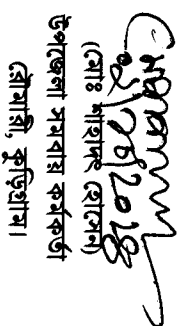 (মোঃ শাহাদৎ হোসেন)
উপজেলা সমবায় কর্মকর্তা
রৌমারী, কুড়িগ্রাম।